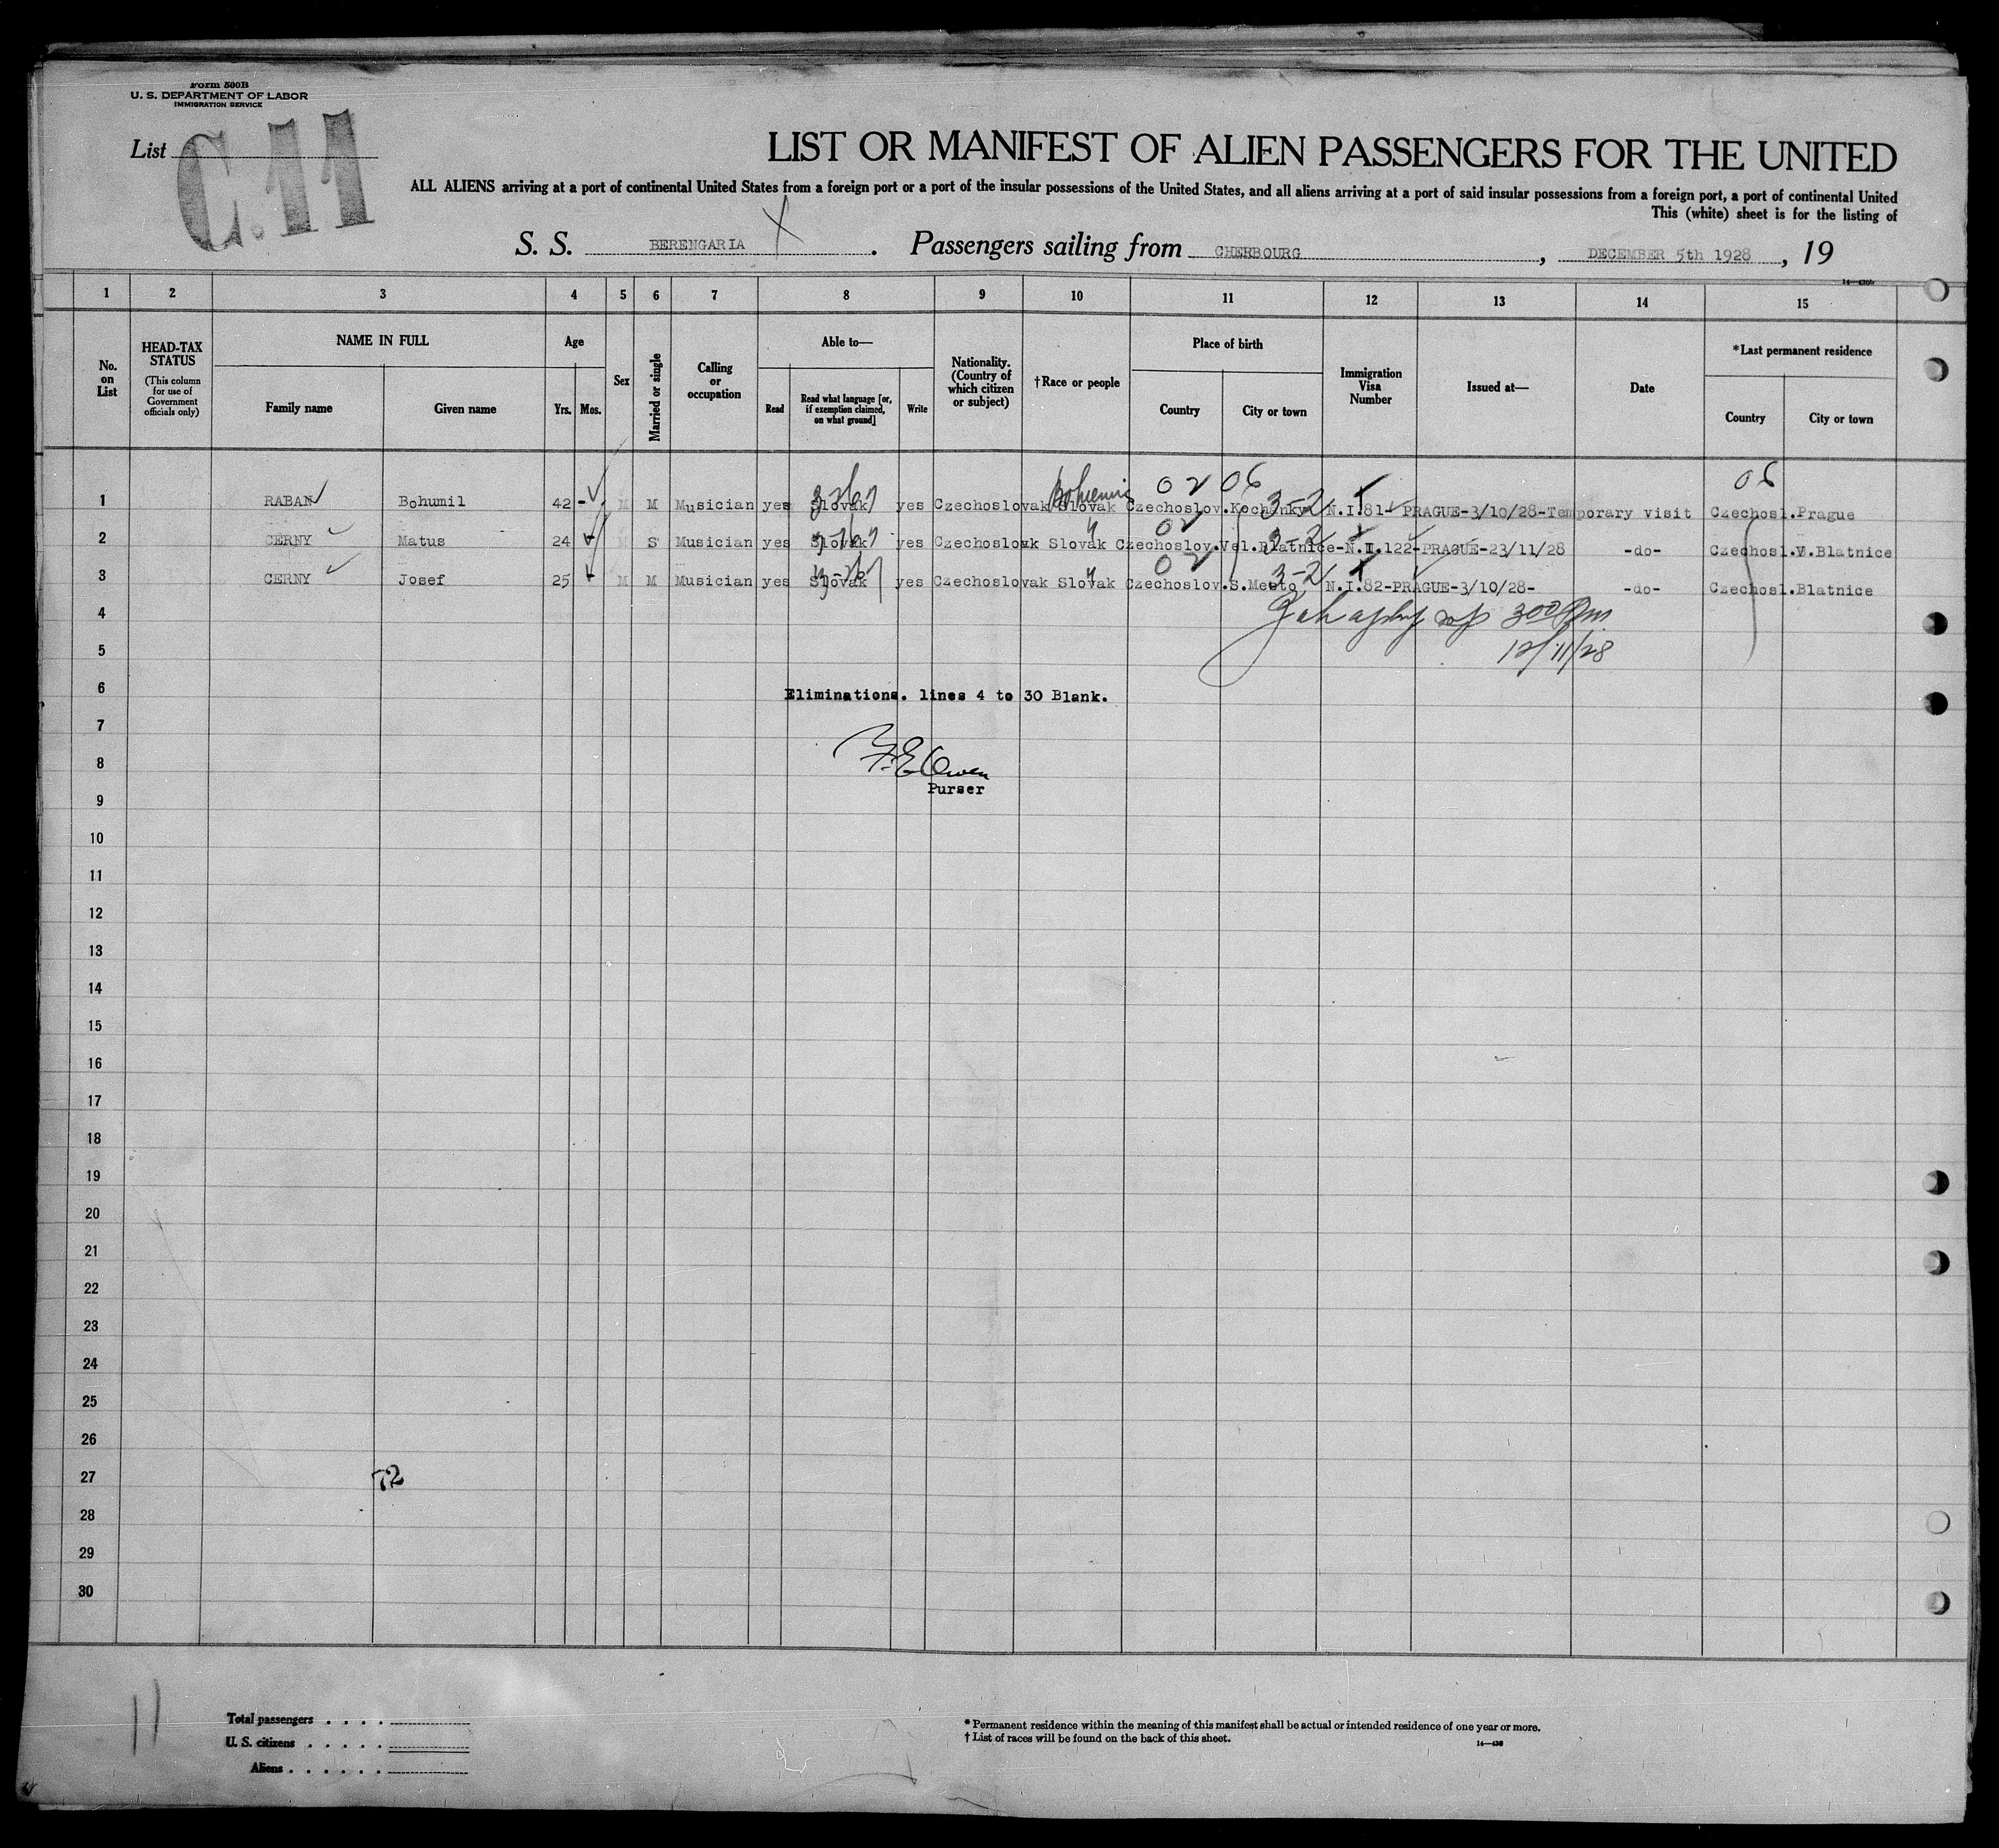 Form 500B
U. S. DEPARTMENT OF LABOR
IMMIGRATION SERVICE
List
C.11
LIST OR MANIFEST OF ALIEN PASSENGERS FOR THE UNITED
ALL ALIENS arriving at a port of continental United States from a foreign port or a port of the insular possessions of the United States, and all aliens arriving at a port of said insular possessions from a foreign port, a port of continental United
This (white) sheet is for the listing of
S. S. BERENGARIA . Passengers sailing from CHERBOURG , DECEMBER 5th 1928 , 19
1 2 3 4 5 6 7 8 9 10 11 12 13 14 15
No. on List
HEAD-TAX STATUS
(This column for use of Government officials only)
NAME IN FULL
Family name
Given name
Age
Yrs.
Mos.
Sex
Married or single
Calling or occupation
Able to—
Read
Read what language [or, if exemption claimed, on what ground]
Write
Nationality. (Country of which citizen or subject)
†Race or people
Place of birth
Country
City or town
Immigration Visa Number
Issued at—
Date
*Last permanent residence
Country
City or town
02 06 06
1 RABAN Bohumil 42 - M M Musician yes Slovak yes Czechoslovak Slovak Czechoslov. 3-2 N.I.81- PRAGUE-3/10/28-Temporary visit Czechosl.Prague
02
2 CERNY Matus 24 - M S Musician yes Slovak yes Czechoslovak Slovak Czechoslov.Vel.Blatnice-N.I.122-PRAGUE-23/11/28 -do- Czechosl.V.Blatnice
02
3 CERNY Josef 25 - M M Musician yes Slovak yes Czechoslovak Slovak Czechoslov.S.Mesto 3-2 N.I.82-PRAGUE-3/10/28- -do- Czechosl.Blatnice
4
5 12/11/28
6 Eliminations. lines 4 to 30 Blank.
7
8 Owen
Purser
9
10
11
12
13
14
15
16
17
18
19
20
21
22
23
24
25
26
27 72
28
29
30
11
Total passengers . . . .
U. S. citizens . . . . .
Aliens . . . . . .
* Permanent residence within the meaning of this manifest shall be actual or intended residence of one year or more.
† List of races will be found on the back of this sheet.